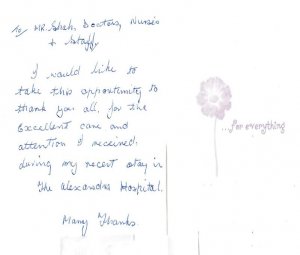 To MR. Shah, Doctors, Nurses
+ Staff,
I would like to
take this opportunity to
thank you all, for the
excellent care and
attention I received.
during my recent stay in
The Alexandra Hospital.
Many Thanks.
...for everything